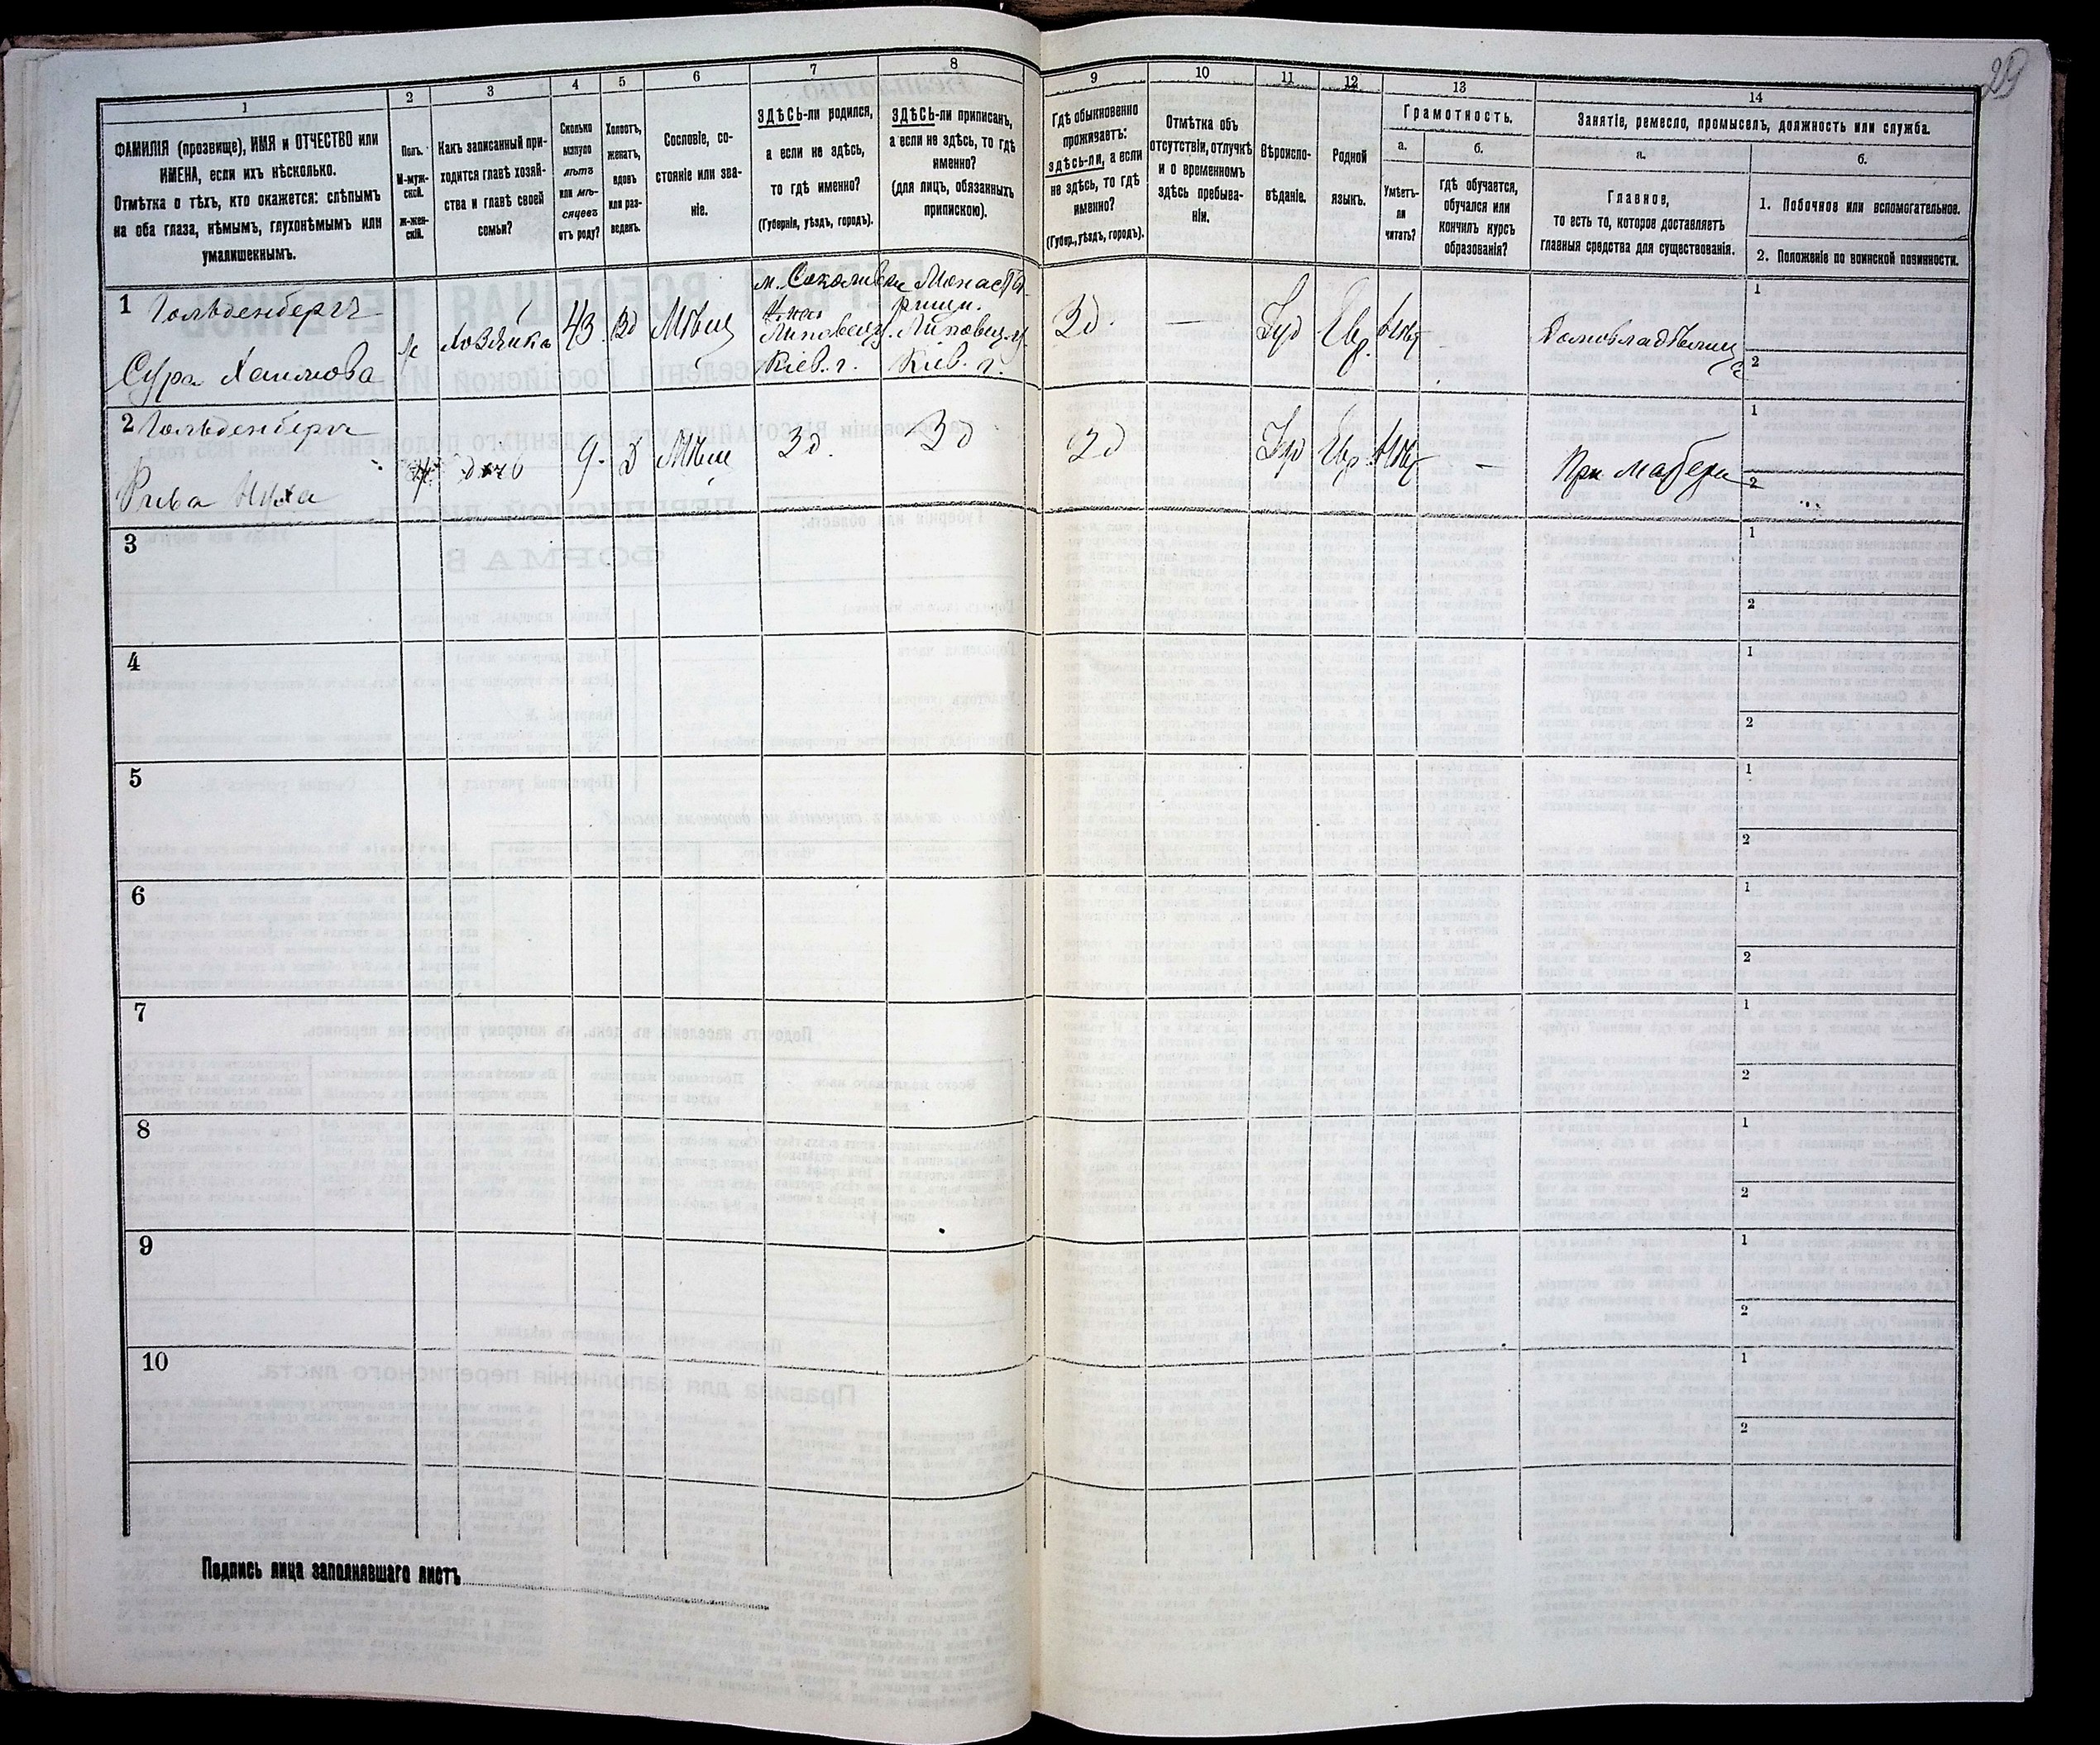 29
1
2
3
4
5
6
7
8
9
10
11
12
13
14
ФАМИЛІЯ (прозвище), ИМЯ и ОТЧЕСТВО или
ИМЕНА, если ихъ нѣсколько.
Отмѣтка о тѣхъ, кто окажется: слѣпымъ
на оба глаза, нѣмымъ, глухонѣмымъ или
умалишеннымъ.
Полъ.
М-муж-
ской.
Ж-жен-
скій.
Какъ записанный при-
ходится главѣ хозяй-
ства и главѣ своей
семьи?
Сколько
минуло
лѣтъ
или мѣ-
сяцевъ
отъ роду?
Холостъ,
женатъ,
вдовъ
или раз-
веденъ.
Сословіе, со-
стояніе или зва-
ніе.
ЗДѢСЬ-ли родился,
а если не здѣсь,
то гдѣ именно?
(Губернія, уѣздъ, городъ).
ЗДѢСЬ-ли приписанъ,
а если не здѣсь, то гдѣ
именно?
(для лицъ, обязанныхъ
припискою).
Гдѣ обыкновенно
проживаетъ:
здѣсь-ли, а если
не здѣсь, то гдѣ
именно?
(Губер., уѣздъ, городъ).
Отмѣтка объ
отсутствіи, отлучкѣ
и о временномъ
здѣсь пребыва-
ніи.
Вѣроиспо-
вѣданіе.
Родной
языкъ.
Грамотность.
а.
Умѣетъ-
ли
читать?
б.
гдѣ обучается,
обучался или
кончилъ курсъ
образованія?
Занятіе, ремесло, промыселъ, должность или служба.
а.
Главное,
то есть то, которое доставляетъ
главныя средства для существованія.
б.
1. Побочное или вспомогательное.
2. Положеніе по воинской повинности.
1 Гольденбергъ
Сура Хаимова
ж
хозяйка
43
Вд
Мѣщ
м. Соколивки
Липовец. у.
Кіев. г.
Монасты-
рищи.
Липовец. у
Кіев. г.
Зд.
—
Іуд
Евр.
Домовладѣлица
1
2
2 Гольденбергъ
Рива Нуха
дочь
9.
Д
Мѣщ
Зд.
Зд
Зд
Іуд
Евр
—
При матери
1
2
3
1
2
4
1
2
5
1
2
6
1
2
7
1
2
8
1
2
9
1
2
10
1
2
Подпись лица заполнявшаго листъ